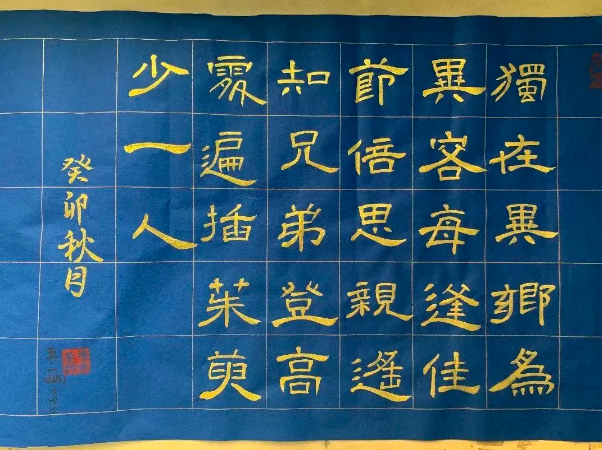 獨在異鄉為
異客每逢佳
節倍思親遙
知兄弟登高
處遍插茱萸
少一人
癸卯秋月